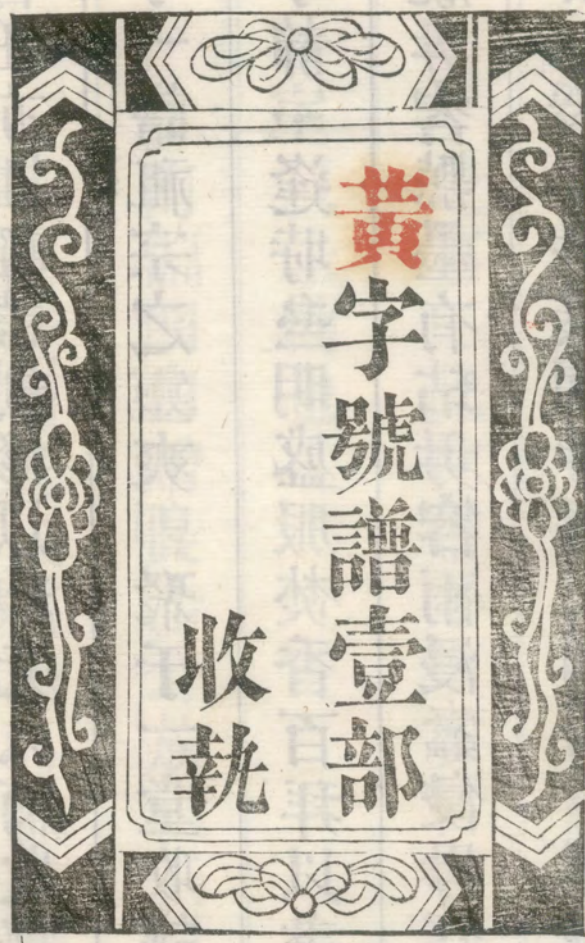 黃字號譜壹部
收執